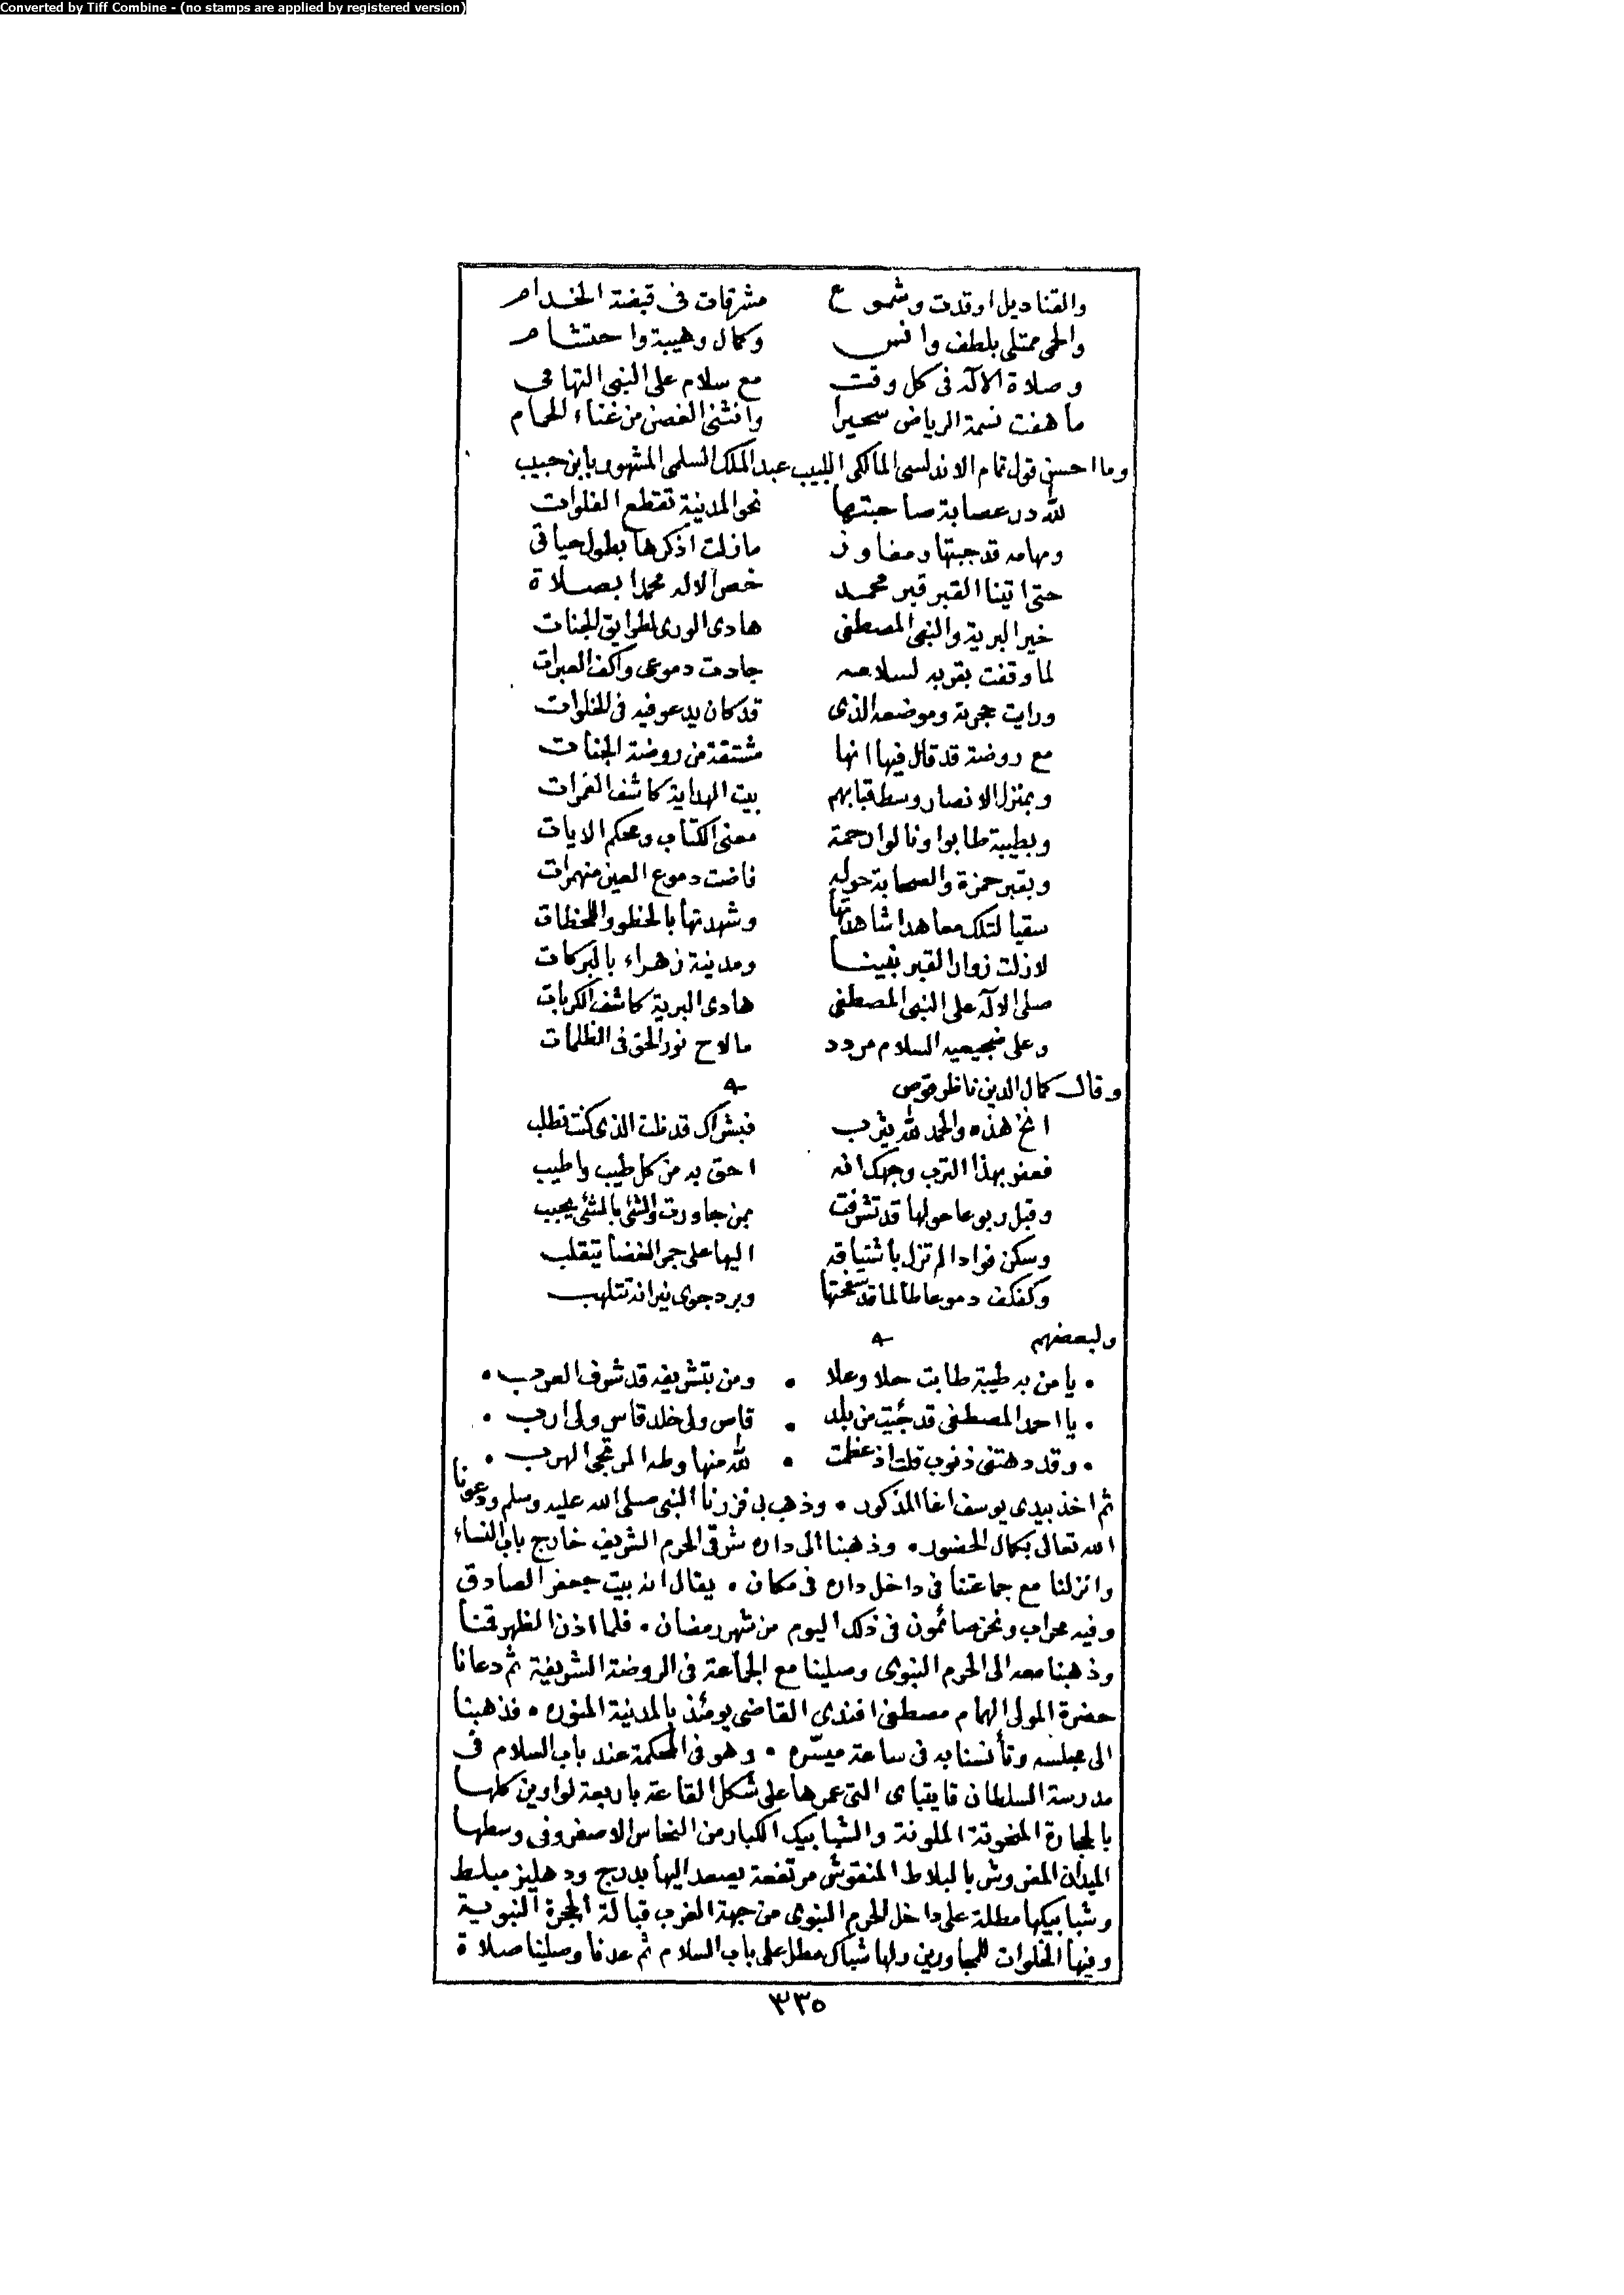 Converted by Tiff Combine - (no stamps are applied by registered version)
والقناديل اوقدت وشموع مشرقات في قبضة الخدام
والحي ممتلي بلطف وانس وكمال وهيبة واحتشام
وصلاة الاله في كل وقت مع سلام على النبي التهامي
ما هفت نسمة الرياض سحيرا وانثنى الغصن من غناء الحمام
وما احسن قول تمام الاندلسي المالكي اللبيب عبد الملك السلمي المشهور بابن حبيب
لله در عصابة صاحبتها نحو المدينة تقطع الفلوات
ومهامه قد جبتها ومفاوز ما زلت اذكرها بطول حياتي
حتى اتينا القبر قبر محمد خص الاله محمدا بصلاة
خير البرية والنبي المصطفى هادي الورى لطرايق الجنات
لما وقفت بقربه لسلامه جادت دموعي واكف العبرات
ورايت حجرته وموضعه الذي قد كان يدعو فيه في الخلوات
مع روضة قد قال فيها انها مشتقة من روضة الجنات
وبمنزل الانصار وسط قبابهم بيت الهداية كاشف الغمرات
وبطيبة طابوا ونالوا رحمة معنى الكتاب ومحكم الايات
وبقبر حمزة والصحابة حوله فاضت دموع العين منهمرات
سقيا لتلك معاهدا شاهدتها وشهدتها بالخطو واللحظات
لا زلت زوار القبر نبينا ومدينة زهراء بالبركات
صلى الاله على النبي المصطفى هادي البرية كاشف الكربات
وعلى ضجيعيه السلام مردد ما لاح نور الحق في الظلمات
وقال كمال الدين ناظر قوص
انخ هذه والحمد لله يثرب فبشراك قد نلت الذي كنت تطلب
فعفر بهذا الترب وجهك انه احق به من كل طيب واطيب
وقبل ربوعا حولها قد تشرفت بمن جاورت والشئ بالشئ يحبب
وسكن فوادا لم تزل باشتياقه اليها على جمر الغضا يتقلب
وكفكف دموعا طالما قد سفحتها وبرد جوى نيرانه تتلهب
ولبعضهم
• يا من به طيبة طابت حلا وعلا • ومن بتشريفه قد شرف العرب •
• يا احمد المصطفى قد جئت من بلد • قاس ولي خلد قاس ولي ارب •
• وقد دهتني ذنوب قلت اذ عظمت • لله منها وطه المرتجى الهرب •
ثم اخذ بيدي يوسف اغا المذكور • وذهب بي فزرنا النبي صلى الله عليه وسلم ودعونا
الله تعالى بكمال الحضور • وذهبنا الى داره شرقي الحرم الشريف خارج باب النساء
وانزلنا مع جماعتنا في داخل داره في مكان • يقال انه بيت جعفر الصادق
وفيه محراب ونحن صائمون في ذلك اليوم من شهر رمضان • فلما اذن الظهر قمنا
وذهبنا معه الى الحرم النبوي وصلينا مع الجماعة في الروضة الشريفة ثم دعانا
حضرة المولى الهمام مصطفى افندي القاضي يومئذ بالمدينة المنوره • فذهبنا
الى مجلسه وتأنسنا به في ساعة ميسّره • وهو في المحكمة عند باب السلام في
مدرسة السلطان قايتباي التي عمرها على شكل القاعة باربعة لواوين كلها
بالحجارة المنحوتة الملونة والشبابيك الكبار من النحاس الاصفر وفي وسطها
الميدان المفروش بالبلاط المنقوش مرتفعة يصعد اليها بدرج ودهليز مبلط
وشبابيكها مطلة على داخل الحرم النبوي من جهة الغرب قبالة الحجرة النبوية
وفيها الخلوات للمجاورين ولها شباك مطل على باب السلام ثم عدنا وصلينا صلاة
٣٣٥